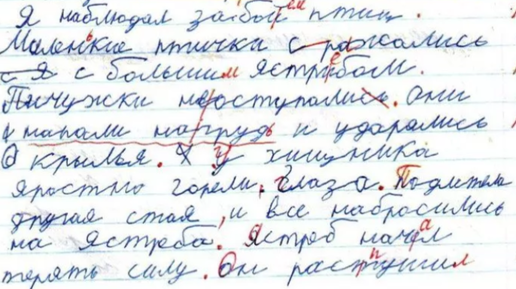 Я наблюдал за боем птиц.
Маленькие птички сражались
с большим ястребом.
Пичужки не оступались. они
напали на грудь и ударялись
о крылья. Х у хищника
яростно горели глаза. Подлетела
другая стая, и все набросились
на ястреба. Ястреб начал
терять силу. Он распушил